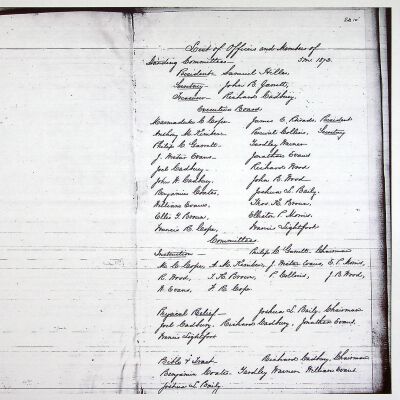 List of Officers and Members of
Standing Committees 1873.
President Samuel Hilles
Secretary John B. Garrett,
Treasurer Richard Cadbury,
Executive Board
Marmaduke C. Cope, James E. Rhoads, President
Anthony M. Kimber, Percival Collins, Secretary
Philip C. Garrett, Yardley Warner
J. Wistar Evans, Jonathan Evans
Joel Cadbury, Richard Wood
John W. Cadbury, John B. Wood
Benjamin Coates, Joshua L. Baily,
William Evans, Thos. K. Brown,
Ellis Y. Brown, Elliston P. Morris,
Francis R. Cope, Francis Lightfoot
Committees.
Instruction Philip C. Garrett, Chairman
M. C. Cope, A. M. Kimber, J. Wistar Evans, E. P. Morris,
R. Wood, T. K. Brown, P. Collins, J. B. Wood,
W. Evans, F. R. Cope
Physical Relief Joshua L. Baily, Chairman
Joel Cadbury, Richard Cadbury, Jonathan Evans,
Francis Lightfoot
Bible & Tract Richard Cadbury, Chairman
Benjamin Coates, Yardley Warner, William Evans
Joshua L. Baily